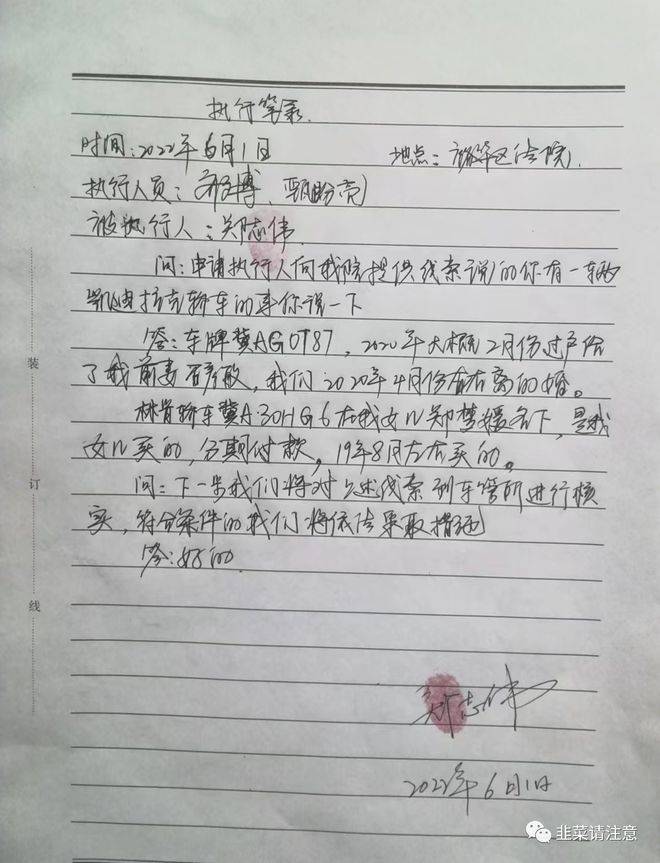 执行笔录
时间:2022年6月1日 地点:裕华区法院
执行人员:博、甄盼亮
被执行人:郑志伟
问:申请执行人向我院提供线索说的你有一辆
凯迪拉克轿车的事你说一下
答:车牌冀AG0T87,2020年大概2月份过户给
了我前妻彦敏,我们2020年4月份左右离的婚。
林肯轿车冀A30HG6在我女儿郑梦媛名下,是我
女儿买的,分期付款,19年8月左右买的。
问:下一步我们将对上述线索到车管所进行核
实,符合条件的我们将依法采取措施
答:好的
郑志伟
2022年6月1日
装
订
线
韭菜请注意